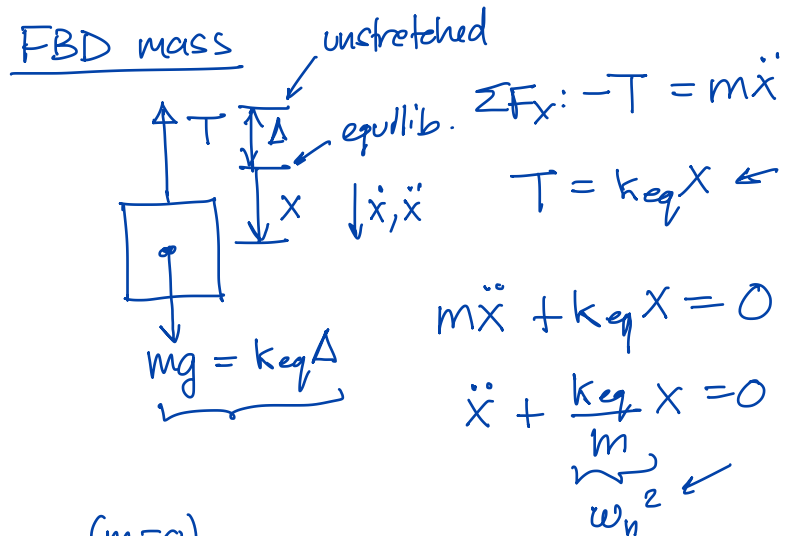 FBD mass
unstretched
T
Δ
equilib.
x
ẋ, ẍ
mg = k_eq Δ
ΣF_x: -T = mẍ
T = k_eq x
mẍ + k_eq x = 0
ẍ + k_eq/m x = 0
ω_n²